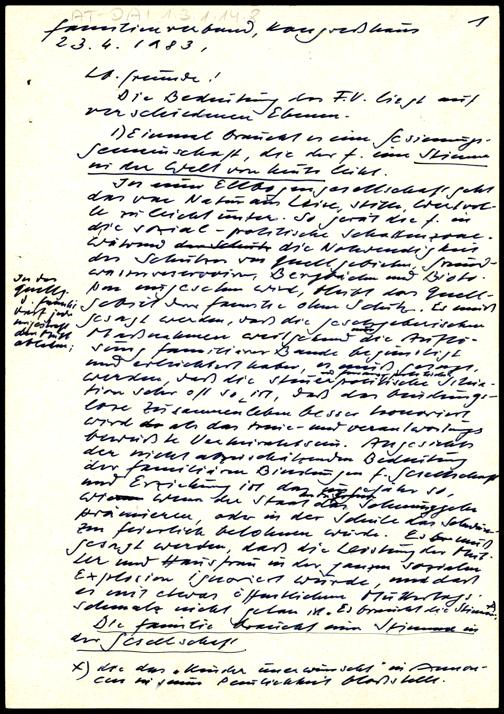 AT-DAI 1.3.1.14.8
1
Familienverband, Kongreßhaus
23.4.1983,
Lb. Freunde!
Die Bedeutung des F.V. liegt auf
verschiedenen Ebenen.
1) Einmal braucht es eine Gesinnungs-
gemeinschaft, die der F. eine Stimme
in der Welt von heute leiht.
In einer Ellbogengesellschaft geht
das von Natur aus Leise, Stille, Wertvol-
le zu leicht unter. So gerät die F. in
die sozial-politische Schattenzone.
Während die Notwendigkeit
des Schutzes von Quellgebieten, Grund-
wasserreservoiren, Bergbächen und Bioto-
pen eingesehen wird, bleibt das Quell-
gebiet der Familie ohne Schutz. Es muß
gesagt werden, daß die gesetzgeberischen
Maßnahmen weitgehend die Auflö-
sung familiärer Bande begünstigt
und erleichtert haben, es muß gesagt
werden, daß die steuerpolitische Situa-
tion sehr oft so ist, daß das bindungs-
lose Zusammenleben besser honoriert
wird als das treue und verantwortungs
bewußte Verheiratetsein. Angesichts
der nicht abzuschätzenden Bedeutung
der familiären Bindungen f. Gesellschaft
und Erziehung ist das ungefähr so,
wie wenn der Staat das Schwarzgehen
prämieren, oder in der Schule das Schwänzen
zu feierlich belohnen würde. Es muß
gesagt werden, daß die Leistung der Mut-
ter und Hausfrau in der ganzen sozialen
Explosion ignoriert wurde, und daß
es mit etwas öffentlichem Muttertags-
schmalz nicht getan ist. Es braucht die Stimme x)
Die Familie braucht eine Stimme in
der Gesellschaft
x) die das „Kinder unerwünscht" in Annon-
cen in seiner Peinlichkeit bloßstellt.
In das
Quellg.
d. Familie
darf jeder
ungestraft
den Mist
abladen;